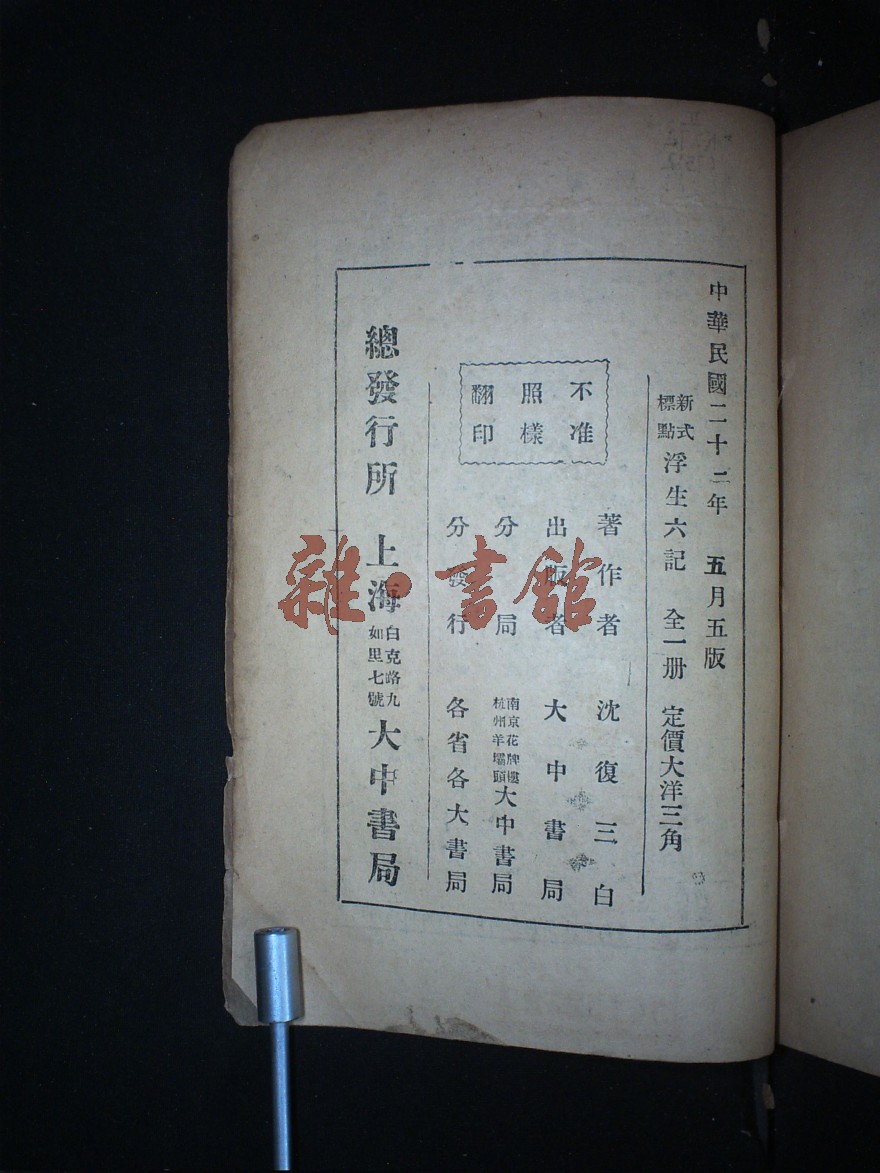 中華民國二十二年 五月五版
新式標點 浮生六記 全一册 定價大洋三角
不准
照樣
翻印
著作者 沈復三白
出版者 大中書局
分局 南京花牌樓 杭州羊壩頭 大中書局
分發行 各省各大書局
總發行所 上海 白克路九如里七號 大中書局
雜·書館